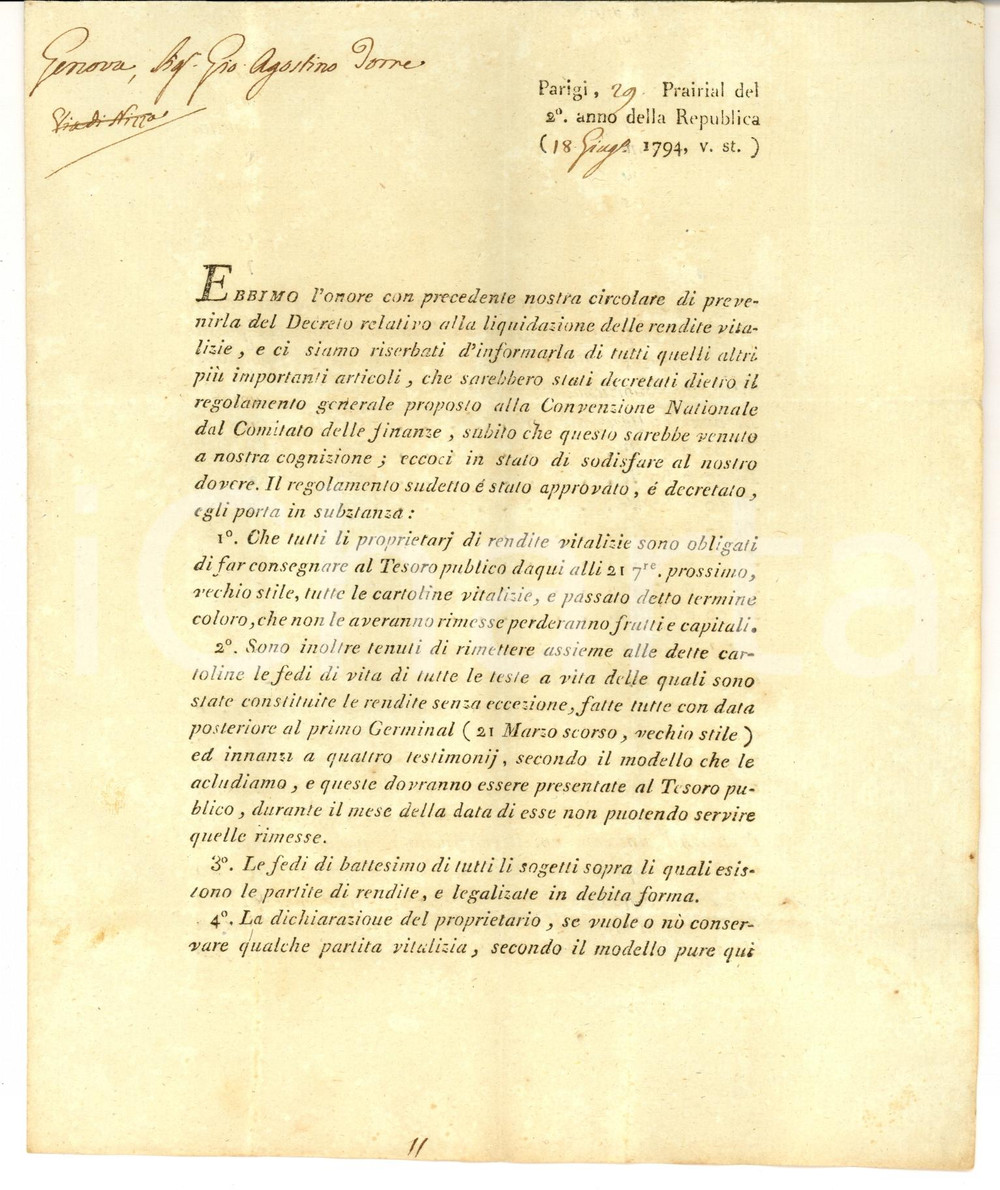 Genova, Sigr. Gio. Agostino Torre
Via di Nizza
Parigi, 29 Prairial del
2º. anno della Republica
(18 Giugº. 1794, v. st.)
EBBIMO l'onore con precedente nostra circolare di preve-
nirla del Decreto relativo alla liquidazione delle rendite vita-
lizie, e ci siamo riserbati d'informarla di tutti quelli altri
più importanti articoli, che sarebbero stati decretati dietro il
regolamento generale proposto alla Convenzione Nationale
dal Comitato delle finanze, subito che questo sarebbe venuto
a nostra cognizione; eccoci in stato di sodisfare al nostro
dovere. Il regolamento sudetto é stato approvato, é decretato,
egli porta in substanza:
1º. Che tutti li proprietarj di rendite vitalizie sono obligati
di far consegnare al Tesoro publico daqui alli 21 7re. prossimo,
vechio stile, tutte le cartoline vitalizie, e passato detto termine
coloro, che non le averanno rimesse perderanno frutti e capitali.
2º. Sono inoltre tenuti di rimettere assieme alle dette car-
toline le fedi di vita di tutte le teste a vita delle quali sono
state constituite le rendite senza eccezione, fatte tutte con data
posteriore al primo Germinal (21 Marzo scorso, vechio stile)
ed innanzi a quattro testimonij, secondo il modello che le
acludiamo, e queste dovranno essere presentate al Tesoro pu-
blico, durante il mese della data di esse non puotendo servire
quelle rimesse.
3º. Le fedi di battesimo di tutti li sogetti sopra li quali esis-
tono le partite di rendite, e legalizate in debita forma.
4º. La dichiarazioue del proprietario, se vuole o nò conser-
vare qualche partita vitalizia, secondo il modello pure qui
11